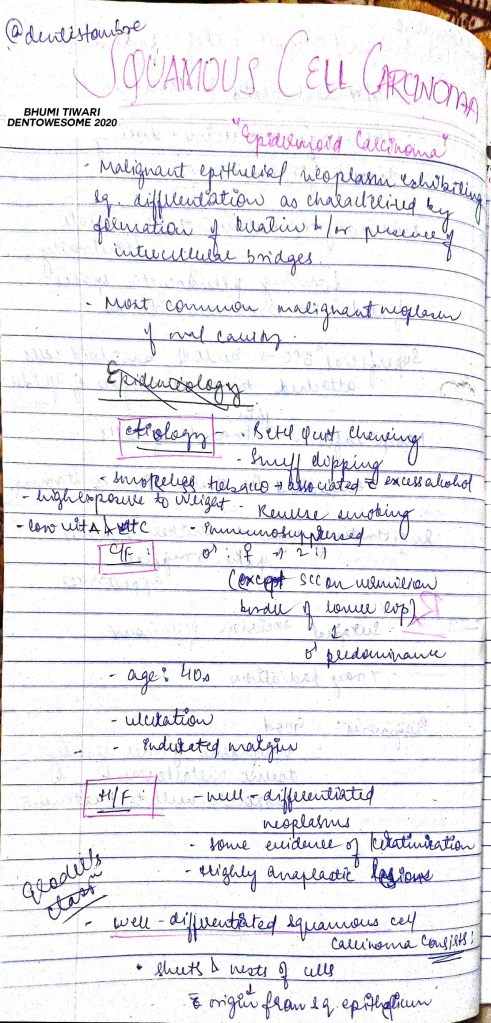 @dentistambze
SQUAMOUS CELL CARCINOMA
BHUMI TIWARI
DENTOWESOME 2020
"Epidermoid Carcinoma"
- Malignant epithelial neoplasm exhibiting
sq. differentiation as characterized by
formation of keratin &/or presence of
intercellular bridges.
- Most common malignant neoplasm
of oral cavity.
Epidemiology
etiology - Betel quit chewing
- Snuff dipping
- smokeless tobacco + associated c̄ excess alcohol
- high exposure to UV light - Reverse smoking
- low vit A & vit C - immunosuppressed
C/F: ♂ : ♀ → 2:1
(except SCC on vermilion
border of lower lip)
↓
♂ predominance
- age: 40s
- ulceration
- indurated margin
H/F - well-differentiated
neoplasms
- some evidence of keratinization
- Highly anaplastic lesions
Broder's
classⁿ
- well-differentiated squamous cell
carcinoma consists:
• sheets & nests of cells
↓
c̄ origin from sq. epithelium